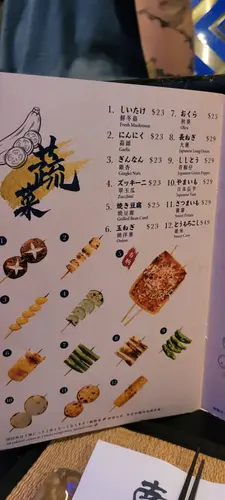 蔬菜
1. しいたけ $23
鮮冬菇
Fresh Mushroom
2. にんにく $23
蒜頭
Garlic
3. ぎんなん $23
銀杏
Gingko Nuts
4. ズッキーニ $23
翠玉瓜
Zucchini
5. 焼き豆腐 $25
燒豆腐
Grilled Bean Curd
6. 玉ねぎ $23
燒洋蔥
Onion
7. おくら $23
秋葵
Okra
8. 長ねぎ $29
大蔥
Japanese Long Onion
9. ししとう $29
青椒仔
Japanese Green Pepper
10. やまいも $29
Japanese Yam
11. さつまいも $29
蕃薯
Sweet Potato
12. とうもろこし $49
粟米
Sweet Corn
1
2
3
4
5
6
7
8
9
10
11
12